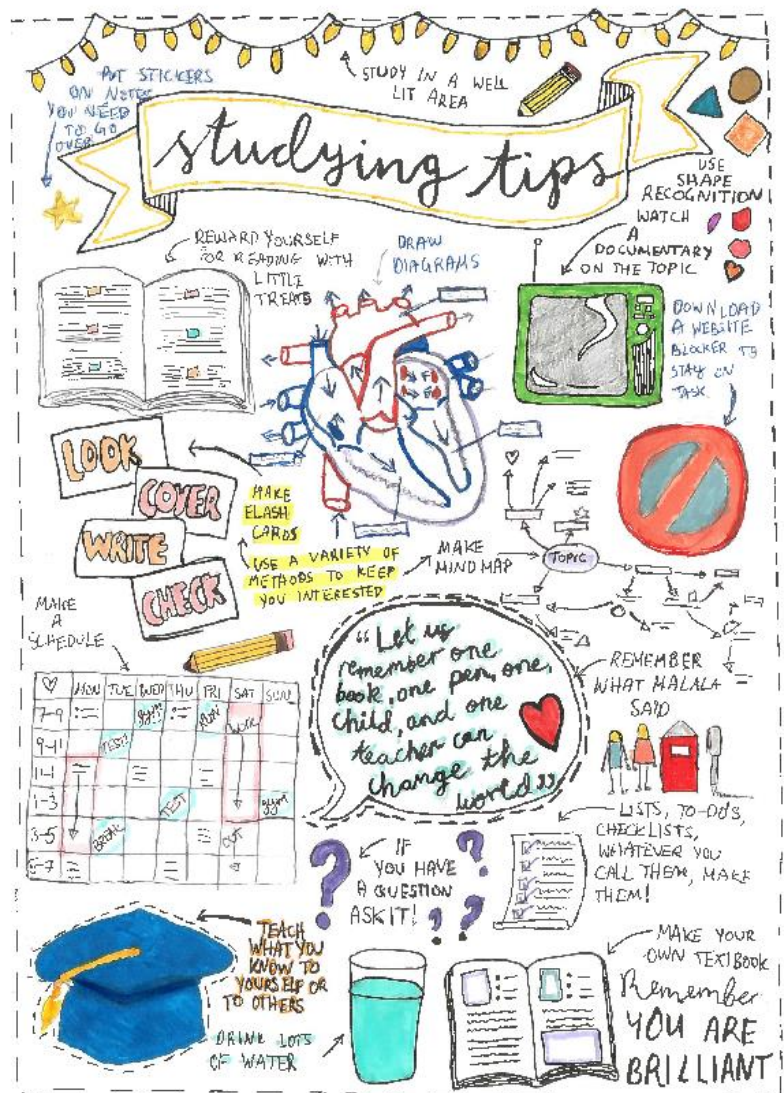 PUT STICKERS
ON NOTES
YOU NEED
TO GO
OVER
STUDY IN A WELL
LIT AREA
studying tips
USE
SHAPE
RECOGNITION
WATCH
A
DOCUMENTARY
ON THE TOPIC
REWARD YOURSELF
FOR READING WITH
LITTLE
TREATS
DRAW
DIAGRAMS
DOWNLOAD
A WEBSITE
BLOCKER TO
STAY ON
TASK
LOOK
COVER
WRITE
CHECK
MAKE
FLASH
CARDS
USE A VARIETY OF
METHODS TO KEEP
YOU INTERESTED
MAKE
MIND MAP
TOPIC
MAKE
A
SCHEDULE
MON TUE WED THU FRI SAT SUN
7-9 gym RUN WORK
9-11 TEST!
11-1
1-3 TEST gym
3-5 BREAK OUT
5-7
"Let us
remember one
book, one pen, one,
child, and one
teacher can
change the
world"
REMEMBER
WHAT MALALA
SAID
LISTS, TO-DO'S,
CHECKLISTS,
WHATEVER YOU
CALL THEM, MAKE
THEM!
? IF
YOU HAVE
A QUESTION
ASK IT!
? ? ? ?
TEACH
WHAT YOU
KNOW TO
YOURSELF OR
TO OTHERS
DRINK LOTS
OF WATER
MAKE YOUR
OWN TEXTBOOK
Remember
YOU ARE
BRILLIANT